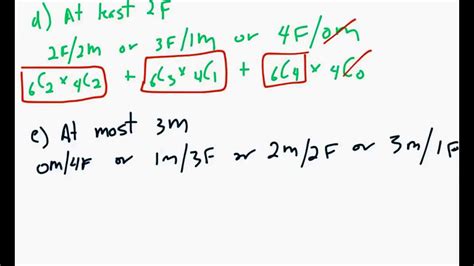 d) At least 2F
2F/2m or 3F/1m or 4F/0m
₆C₂ × ₄C₂ + ₆C₃ × ₄C₁ + ₆C₄ × ₄C₀
e) At most 3m
0m/4F or 1m/3F or 2m/2F or 3m/1F